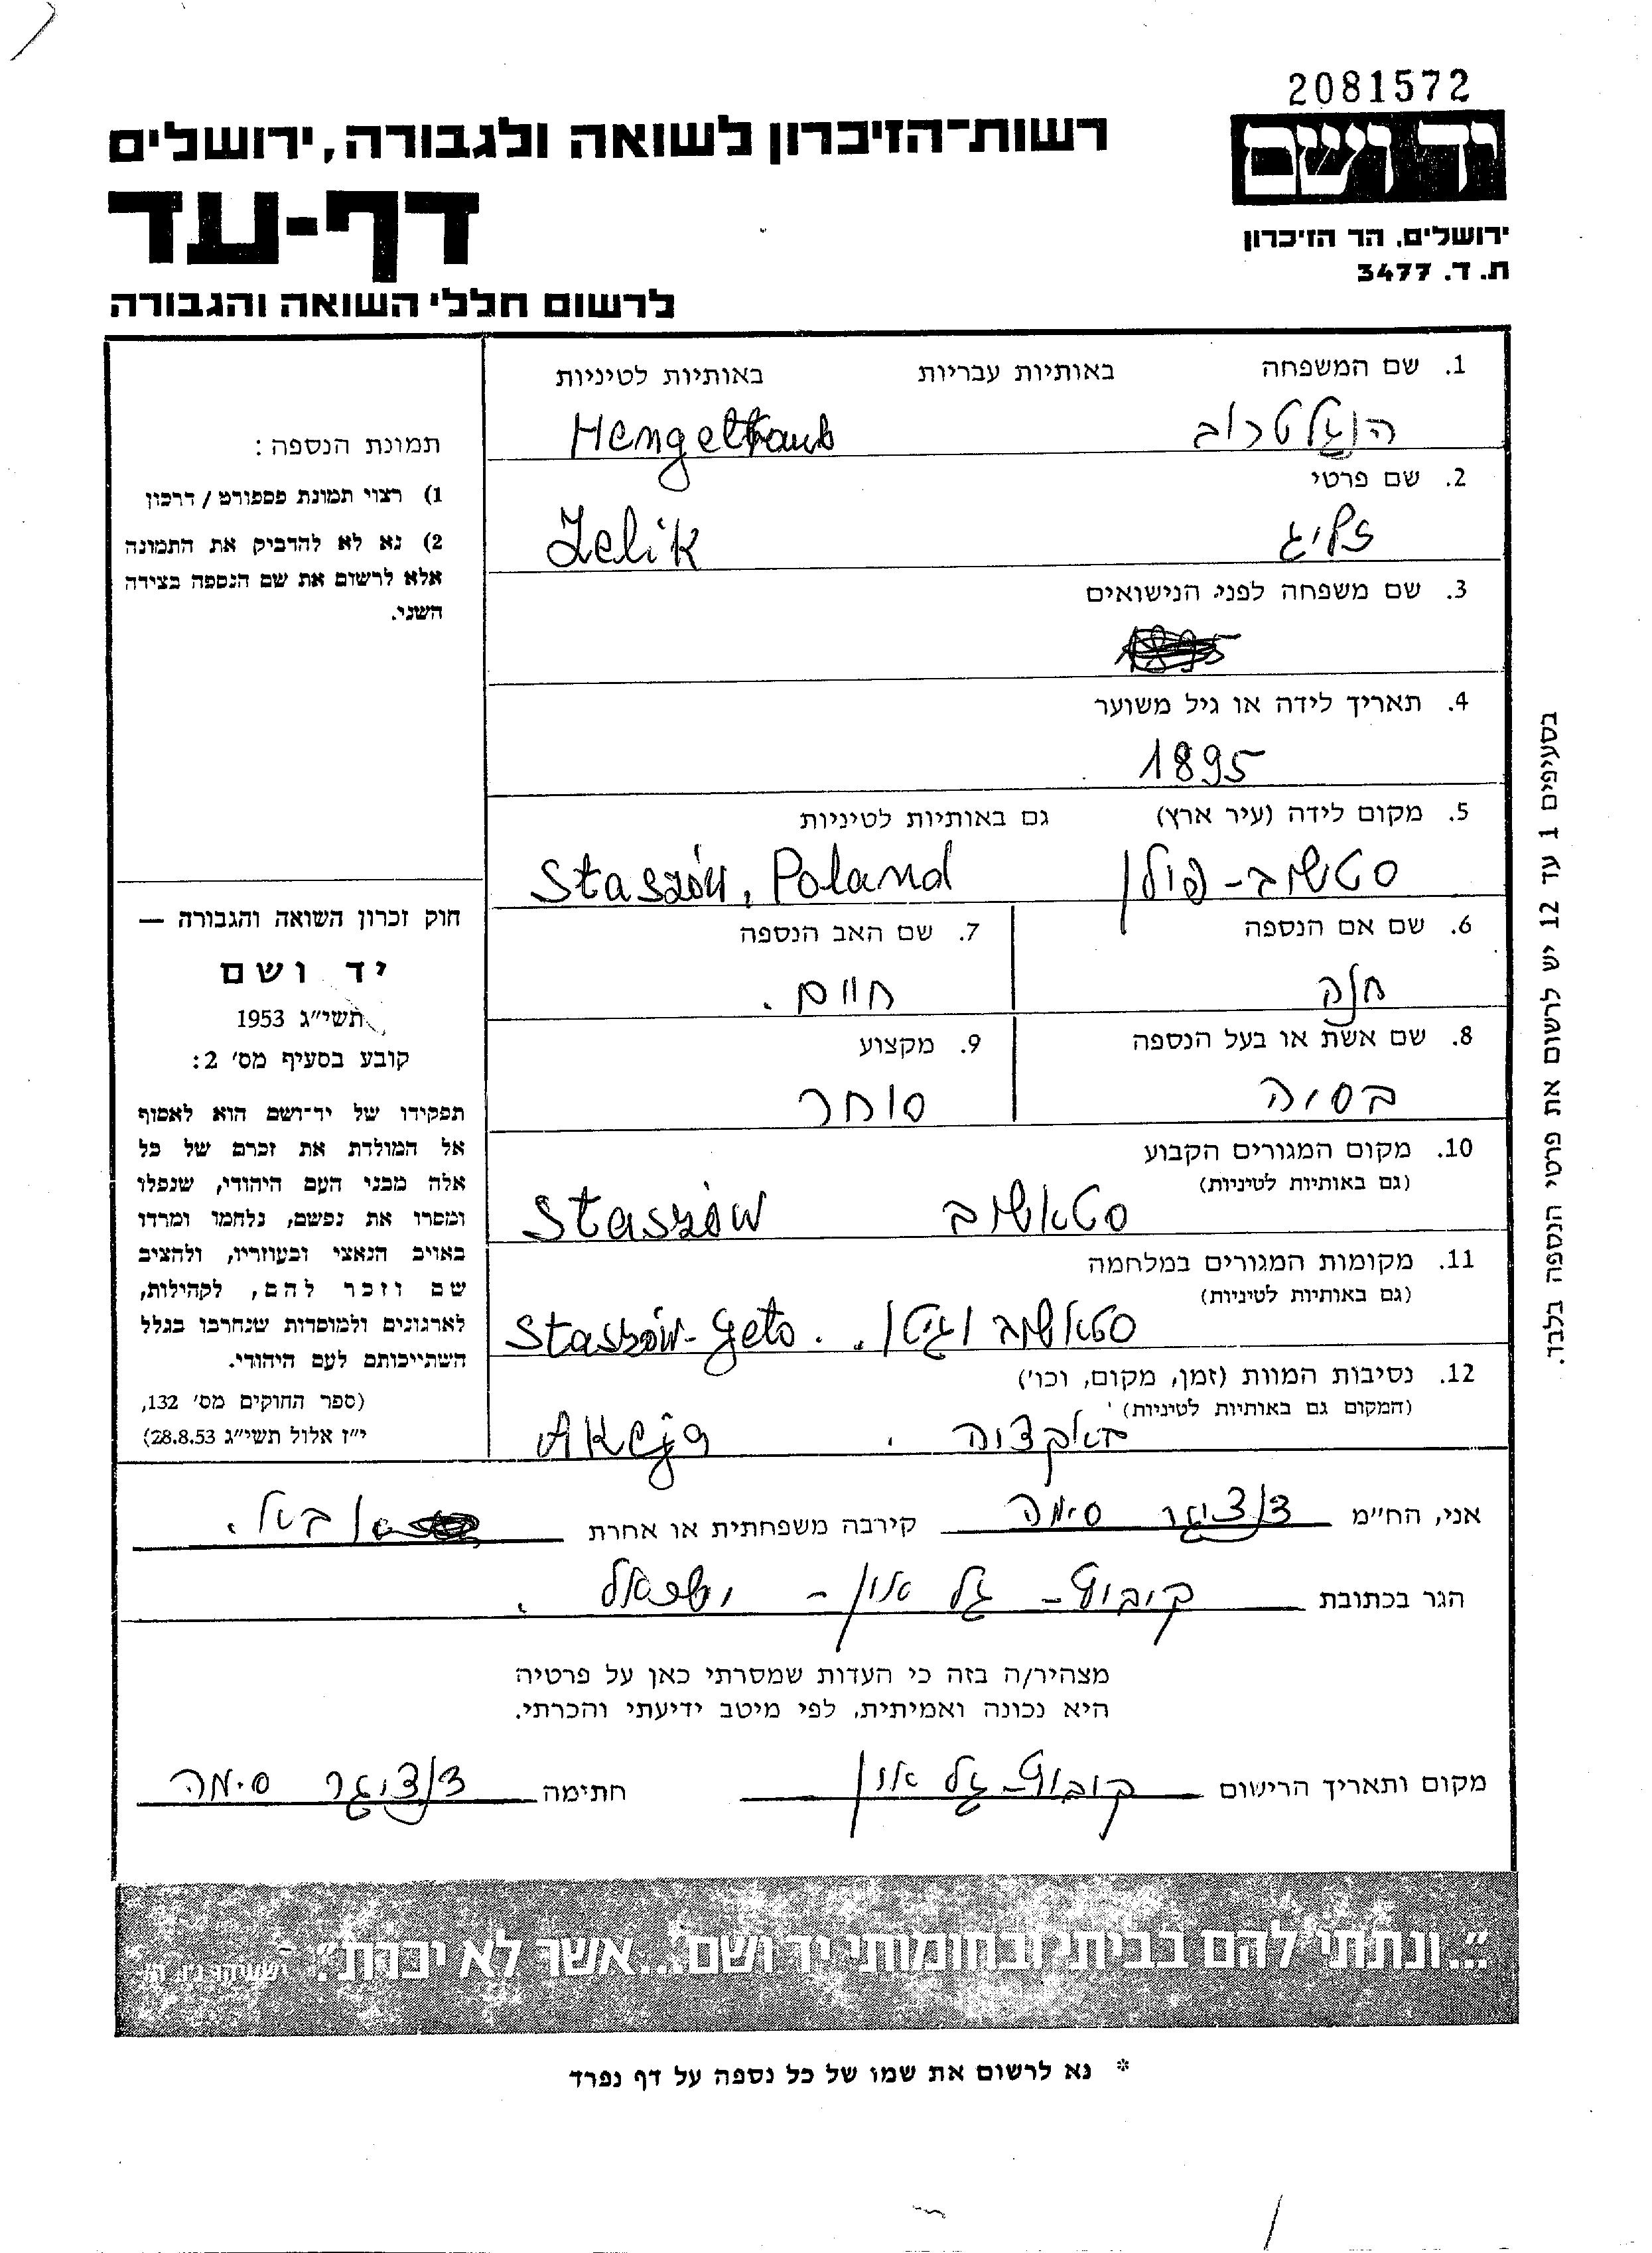 2081572
יד ושם
ירושלים, הר הזיכרון
ת. ד. 3477
רשות־הזיכרון לשואה ולגבורה, ירושלים
דף-עד
לרשום חללי השואה והגבורה
1. שם המשפחה באותיות עבריות באותיות לטיניות
הנגלטרוב Hengeltraub
2. שם פרטי
זליג Zelik
3. שם משפחה לפני הנישואים
4. תאריך לידה או גיל משוער
1895
5. מקום לידה (עיר ארץ) גם באותיות לטיניות
סטשוב-פולן Staszów, Poland
6. שם אם הנספה 7. שם האב הנספה
חנה חיים.
8. שם אשת או בעל הנספה 9. מקצוע
בסיה סוחר
10. מקום המגורים הקבוע
(גם באותיות לטיניות)
סטאשוב Staszów
11. מקומות המגורים במלחמה
(גם באותיות לטיניות)
סטאשוב וגיטו. Staszów-geto.
12. נסיבות המוות (זמן, מקום, וכו')
(המקום גם באותיות לטיניות)
באקציה. Akcja
תמונת הנספה:
1) רצוי תמונת פספורט / דרכון
2) נא לא להדביק את התמונה
אלא לרשום את שם הנספה בצידה
השני.
חוק זכרון השואה והגבורה —
יד ושם
תשי"ג 1953
קובע בסעיף מס' 2:
תפקידו של יד־ושם הוא לאסוף
אל המולדת את זכרם של כל
אלה מבני העם היהודי, שנפלו
ומסרו את נפשם, נלחמו ומרדו
באויב הנאצי ובעוזריו, ולהציב
שם וזכר להם, לקהילות,
לארגונים ולמוסדות שנחרבו בגלל
השתייכותם לעם היהודי.
(ספר החוקים מס' 132,
י"ז אלול תשי"ג 28.8.53)
בסעיפים 1 עד 12 יש לרשום את פרטי הנספה בלבד.
אני, הח"מ דנציגר סימה קירבה משפחתית או אחרת
הגר בכתובת קיבוץ - גל און - ישראל.
מצהיר/ה בזה כי העדות שמסרתי כאן על פרטיה
היא נכונה ואמיתית, לפי מיטב ידיעתי והכרתי.
מקום ותאריך הרישום קיבוץ-גל און חתימה דנציגר סימה
"...ונתתי להם בביתי ובחומותי יד ושם...אשר לא יכרת". ישעיהו נ"ו, ה'
* נא לרשום את שמו של כל נספה על דף נפרד